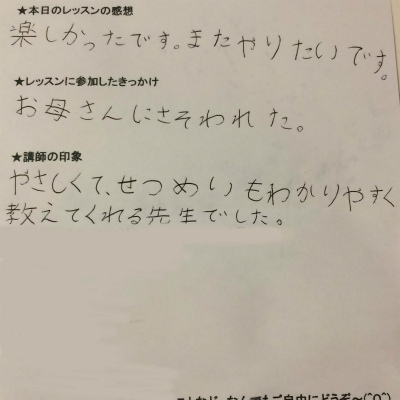 ★本日のレッスンの感想
楽しかったです。またやりたいです。
★レッスンに参加したきっかけ
お母さんにさそわれた。
★講師の印象
やさしくて、せつめいもわかりやすく
教えてくれる先生でした。
なんでもご自由にどうぞ～(^O^)